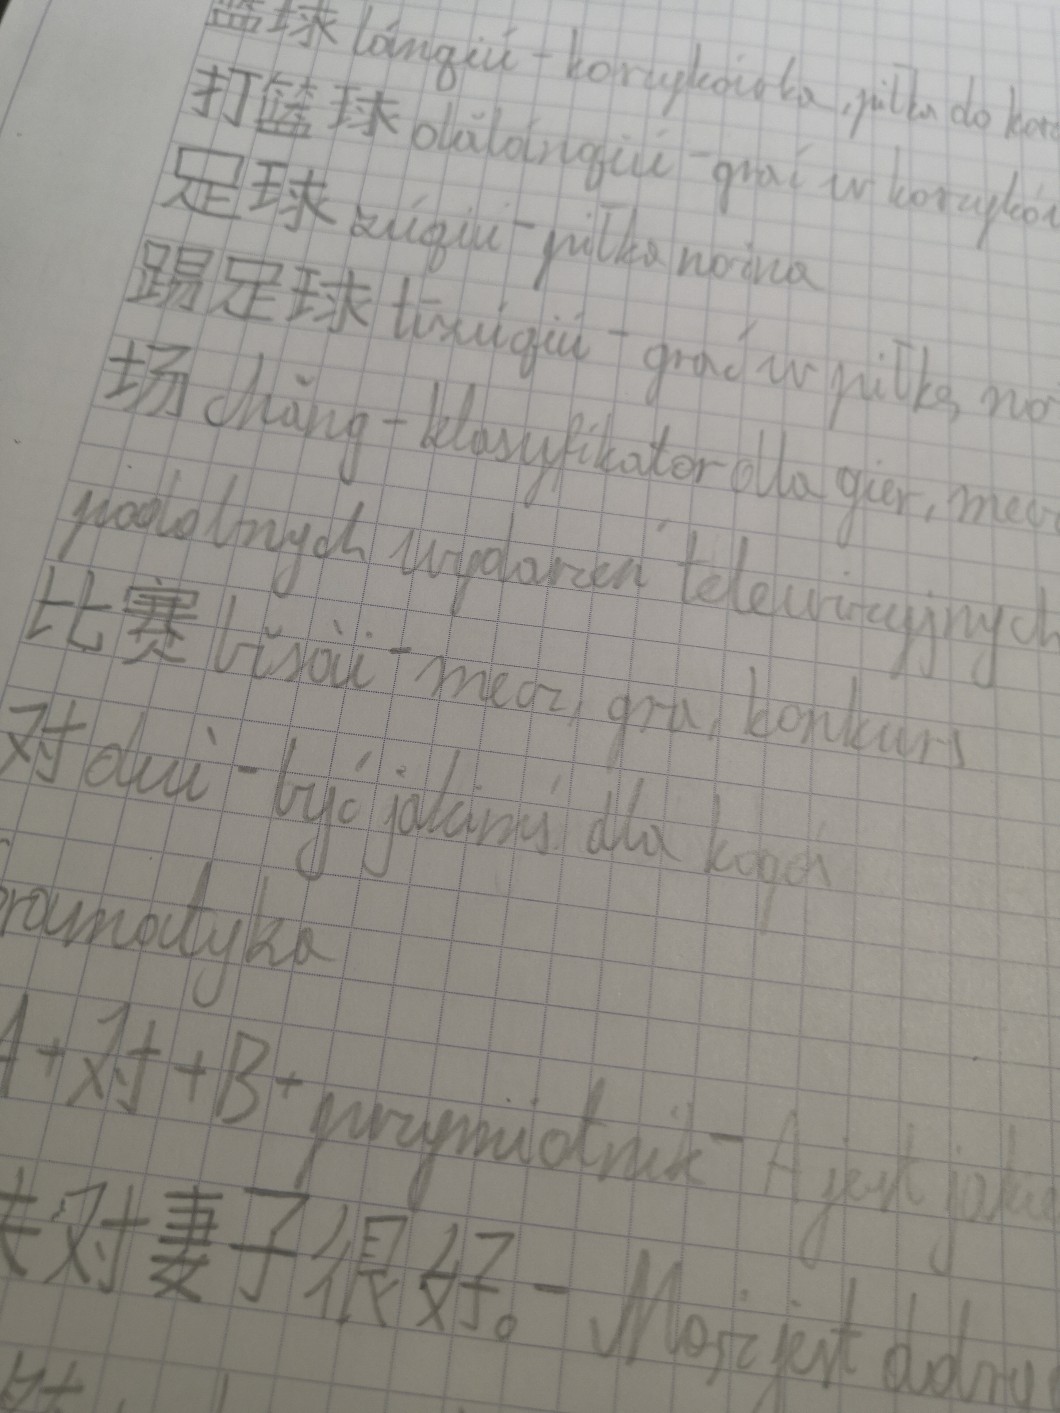 篮球 lánqiú - koszykówka, piłka do
打篮球 dǎlánqiú - grać w
足球 zúqiú - piłka nożna
踢足球 tīzúqiú - grać w piłkę
场 chǎng - klasyfikator dla gier,
podobnych wydarzeń telewizyjnych
比赛 bǐsài - mecz, gra, konkurs
对 duì - być jakimś dla kogoś
Gramatyka
A + 对 + B + przymiotnik - A jest
对妻子很好。- Mąż jest